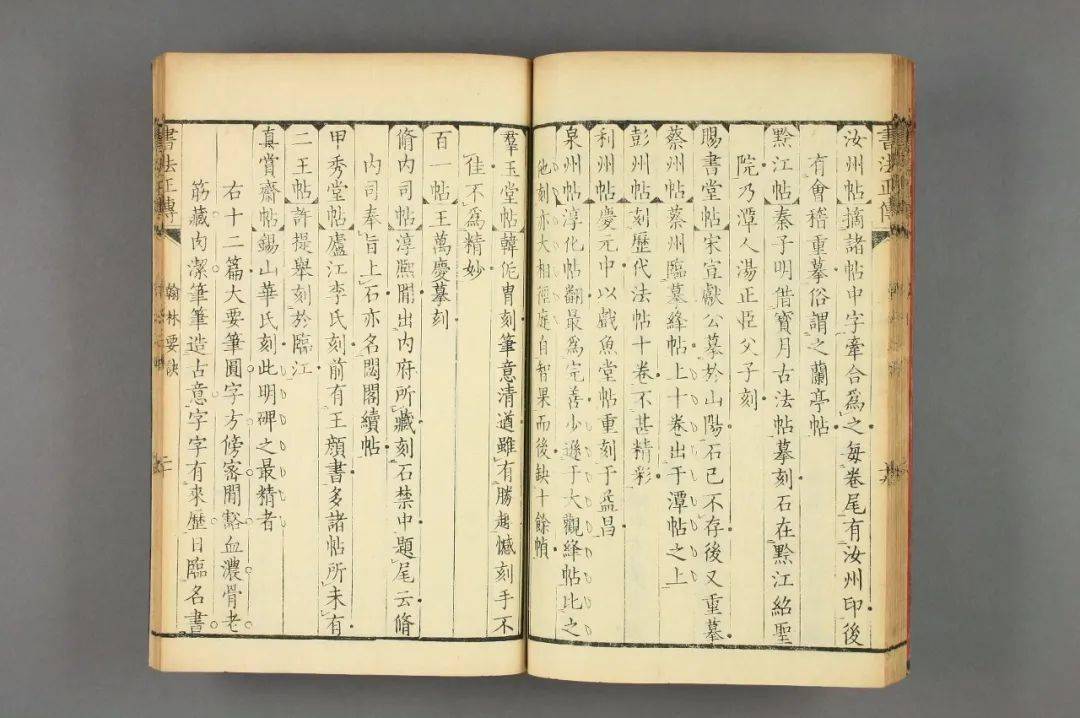 汝州帖摘諸帖中字牽合爲之每卷尾有汝州印後
有會稽重摹俗謂之蘭亭帖
黔江帖秦子明借寶月古法帖摹刻石在黔江紹聖
院乃潭人湯正臣父子刻
賜書堂帖宋宣獻公摹於山陽石已不存後又重摹
蔡州帖蔡州臨摹絳帖上十卷出于潭帖之上
彭州帖刻歷代法帖十卷不甚精彩
利州帖慶元中以戲魚堂帖重刻于益昌
泉州帖淳化帖翻最爲完善少遜于大觀絳帖比之
他刻亦大相徑庭自智果而後缺十餘幀
羣玉堂帖韓侂冑刻筆意清遒雖有勝趣憾刻手不
佳不爲精妙
百一帖王萬慶摹刻
脩内司帖淳熈間出内府所藏刻石禁中題尾云脩
内司奉旨上石亦名閣續帖
甲秀堂帖廬江李氏刻前有王顔書多諸帖所未有
二王帖許提舉刻於臨江
真賞齋帖錫山華氏刻此明碑之最精者
右十二篇大要筆圓字方傍密間豁血濃骨老
筋藏肉潔筆筆造古意字字有來歷日臨名書
書法正傳
翰林要訣
二
書法正傳